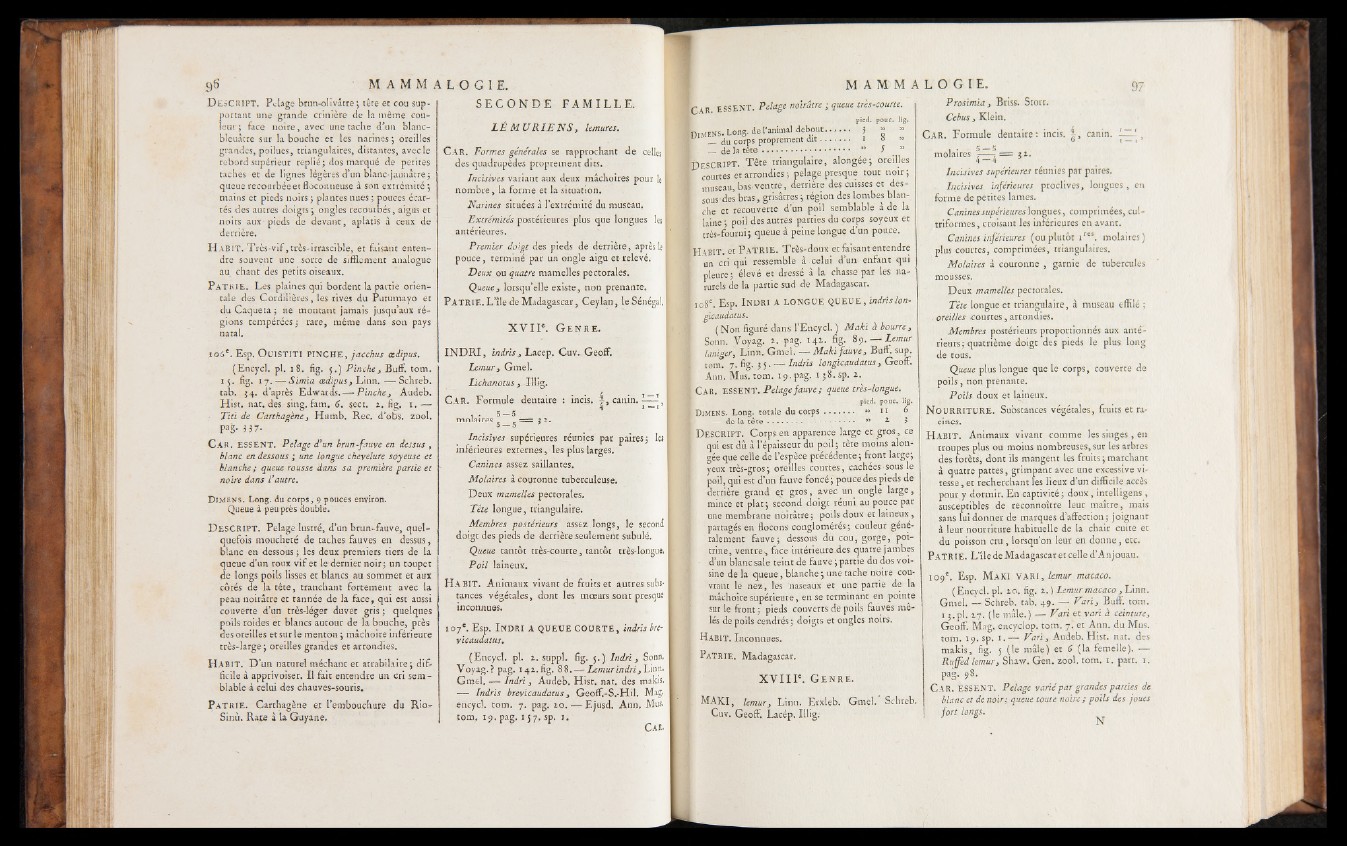 96 MAMMALOGIE.
DESCRIPT. Pelage brun-olivâtre ; tête et cou sup-
portant une grande crinière de la même cou-
leur ; face noire, avec une tache d'un blanc-
bleuâtre sur la bouche et les narines ; oreilles
grandes, poilues, triangulaires, distantes, avec le
rebord supérieur replié ; dos marqué de petites
taches et de lignes légères d'un blanc-jaunâtre ;
queue recourbée et floconneuse à son extrémité ;
mains et pieds noirs ; plantes nues ; pouces écar-
tés des autres doigts ; ongles recourbés, aigus et
noirs aux pieds de devant, aplatis à ceux de
derrière.
HABIT. Très-vif, très-irrascible, et faisant enten-
dre souvent une sorte de sifflement analogue
au chant des petits oiseaux.
PATRIE. Les plaines qui bordent la partie orien-
tale des Cordilières, les rives du Putumayo et
du Caqueta ; ne montant jamais jusqu'aux ré-
gions tempérées ; rare, même dans son pays
natal.
106e. Esp. OUISTITI PINCHE, jacchus œdipus.
(Encycl. pl. 18. fig. 5.) Pinche, Buff. tom.
15. fig. 17. — Simia œdipus, Linn. — Schreb.
tab. 34. d'après Edwards. — Pinche, Audeb.
Hist. nat. des sing. fam. 6. sect. 2. fig. 1. —
Titi de Carthagène, Humb. Rec. d'obs. zool.
pag. 337.
CAR. ESSENT. Pelage d'un brun-fauve en dessus,
blanc en dessous ; une longue chevelure soyeuse et
blanche ; queue rousse dans sa première partie et
noire dans l'autre.
DIMENS. Long. du corps, 9 pouces environ.
Queue à peu près double.
DESCRIPT. Pelage lustré, d'un brun-fauve, quel-
quefois moucheté de taches fauves en dessus,
blanc en dessous ; les deux premiers tiers de la
queue d'un roux vif et le dernier noir ; un toupet
de longs poils lisses et blancs au sommet et aux
côtés de la tête, tranchant fortement avec la
peau noirâtre et tannée de la face, qui est aussi
couverte d'un très-léger duvet gris ; quelques
poils roides et blancs autour de la bouche, près
des oreilles et sur le menton ; mâchoire inférieure
très-large ; oreilles grandes et arrondies.
HABIT. D'un naturel méchant et atrabilaire ; dif-
ficile à apprivoiser. Il fait entendre un cri sem-
blable à celui des chauves-souris.
PATRIE. Carthagène et l'embouchure du Rio-
Sinù. Rare à la Guyane.
SECONDE FAMILLE.
LÉMURIENS, lemures.
CAR. Formes générales se rapprochant de celles
des quadrupèdes proprement dits.
Incisives variant aux deux mâchoires pour le
nombre, la forme et la situation.
Narines situées à l'extrémité du museau.
Extrémités postérieures plus que longues les
antérieures.
Premier doigt des pieds de derrière, après le
pouce, terminé par un ongle aigu et relevé.
Deux ou quatre mamelles pectorales.
Queue, lorsqu'elle existe, non prenante.
PATRIE. L'île de Madagascar, Ceylan, le Sénégal.
XVIIe. GENRE.
INDRI, indris, Lacep. Cuv. Geoff.
Lemur, Gmel.
Lichanotus, Illig.
CAR. Formule dentaire : incis. 4/4, canin. 1—1/1—1,
molaires 5—5/5—5 = 32.
Incisives supérieures réunies par paires ; les
inférieures externes, les plus larges.
Canines assez saillantes.
Molaires à couronne tuberculeuse.
Deux mamelles pectorales.
Tête longue, triangulaire.
Membres postérieurs assez longs, le second
doigt des pieds de derrière seulement subulé.
Queue tantôt très-courte, tantôt très-longue.
Poil laineux.
HABIT. Animaux vivant de fruits et autres subs-
tances végétales, dont les mœurs sont presque
inconnues.
107e. Esp. INDRI A QUEUE COURTE, indris bre-
vicaudatus.
(Encycl. pl. 2. suppl. fig. 5.) Indri, Sonn.
Voyag.? pag. 142. fig. 88. — Lemur indri, Linn.
Gmel. — Indri, Audeb. Hist. nat. des makis.
— Indris brevicaudatus, Geoff.-S.-Hil. Mag.
encycl. tom. 7. pag. 20. — Ejusd. Ann. Mus.
tom. 19. pag. 157. sp. 1.
CAR.
MAMMALOGIE. 97
CAR. ESSENT. Pelage noirâtre ; queue très-courte.
pied. pouc. lig.
DIMENS. Long. de l'animal debout...... 3 » »
— du corps proprement dit....... 1 8 »
— de la tête.................. » 5 »
DESCRIPT. Tête triangulaire, alongée ; oreilles
courtes et arrondies ; pelage presque tout noir ;
museau, bas ventre, derrière des cuisses et des-
sous des bras, grisâtres ; région des lombes blan-
che et recouverte d'un poil semblable à de la
laine ; poil des autres parties du corps soyeux et
très-fourni ; queue à peine longue d'un pouce.
HABIT. et PATRIE. Très-doux et faisant entendre
un cri qui ressemble à celui d'un enfant qui
pleure ; élevé et dressé à la chasse par les na-
turels de la partie sud de Madagascar.
108e. Esp. INDRI A LONGUE QUEUE, indris lon-
gicaudatus.
(Non figuré dans l'Encycl.) Maki à bourre,
Sonn. Voyag. 2. pag. 142. fig. 89. — Lemur
laniger, Linn. Gmel. — Maki fauve, Buff. sup.
tom. 7. fig. 35. — Indris longicaudatus, Geoff.
Ann. Mus. tom. 19. pag. 158. sp. 2.
CAR. ESSENT. Pelage fauve ; queue très-longue.
pied. pouc. lig.
DIMENS. Long. totale du corps....... » 11 6
de la tête............... » 2 3
DESCRIPT. Corps en apparence large et gros, ce
qui est dû à l'épaisseur du poil ; tête moins alon-
gée que celle de l'espèce précédente ; front large ;
yeux très-gros ; oreilles courtes, cachées sous le
poil, qui est d'un fauve foncé ; pouce des pieds de
derrière grand et gros, avec un ongle large,
mince et plat ; second doigt réuni au pouce par
une membrane noirâtre ; poils doux et laineux,
partagés en flocons conglomérés ; couleur géné-
ralement fauve ; dessous du cou, gorge, poi-
trine, ventre, face intérieure des quatre jambes
d'un blanc sale teint de fauve ; partie du dos voi-
sine de la queue, blanche ; une tache noire cou-
vrant le nez, les naseaux et une partie de la
mâchoire supérieure, en se terminant en pointe
sur le front ; pieds couverts de poils fauves mê-
lés de poils cendrés ; doigts et ongles noirs.
HABIT. Inconnues.
PATRIE. Madagascar.
XVIIIe. GENRE.
MAKI, lemur, Linn. Erxleb. Gmel. Schreb.
Cuv. Geoff. Lacép. Illig.
Prosimia, Briss. Storr.
Cebus, Klein.
CAR. Formule dentaire : incis. 4/6, canin. 1—1/1—1,
molaires 5—5/4—4 = 32.
Incisives supérieures réunies par paires.
Incisives inférieures proclives, longues, en
forme de petites lames.
Canines supérieures longues, comprimées, cul-
triformes, croisant les inférieures en avant.
Canines inférieures (ou plutôt 1res. molaires)
plus courtes, comprimées, triangulaires.
Molaires à couronne, garnie de tubercules
mousses.
Deux mamelles pectorales.
Tête longue et triangulaire, à museau effilé ;
oreilles courtes, arrondies.
Membres postérieurs proportionnés aux anté-
rieurs ; quatrième doigt des pieds le plus long
de tous.
Queue plus longue que le corps, couverte de
poils, non prenante.
Poils doux et laineux.
NOURRITURE. Substances végétales, fruits et ra-
cines.
HABIT. Animaux vivant comme les singes, en
troupes plus ou moins nombreuses, sur les arbres
des forêts, dont ils mangent les fruits ; marchant
à quatre pattes, grimpant avec une excessive vi-
tesse, et recherchant les lieux d'un difficile accès
pour y dormir. En captivité ; doux, intelligens,
susceptibles de reconnoître leur maître, mais
sans lui donner de marques d'affection ; joignant
à leur nourriture habituelle de la chair cuite et
du poisson cru, lorsqu'on leur en donne, etc.
PATRIE. L'île de Madagascar et celle d'Anjouan.
109e. Esp. MAKI VARI, lemur macaco.
(Encycl. pl. 20. fig. 2.) Lemur macaco, Linn.
Gmel. — Schreb. tab. 49. — Vari, Buff. tom.
13. pl. 27. (le mâle.) — Vari et vari à ceinture,
Geoff. Mag. encyclop. tom. 7. et Ann. du Mus.
tom. 19. sp. 1. — Vari, Audeb. Hist. nat. des
makis, fig. 5 (le mâle) et 6 (la femelle). —
Ruffed lemur, Shaw. Gen. zool. tom. 1. part. 1.
pag. 98.
CAR. ESSENT. Pelage varié par grandes parties de
blanc et de noir ; queue toute noire ; poils des joues
fort longs.
N